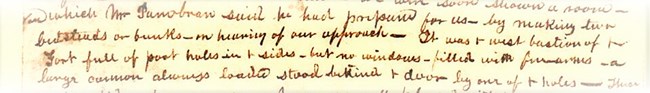 which Mr Pambrun said he had prepared for us - by making two
bedsteads or bunks - on hearing of our approach - It was t west bastion of t
Fort full of port holes in t sides - but no windows - filled with fire arms - a
large cannon always loaded stood behind t door by one of t holes -